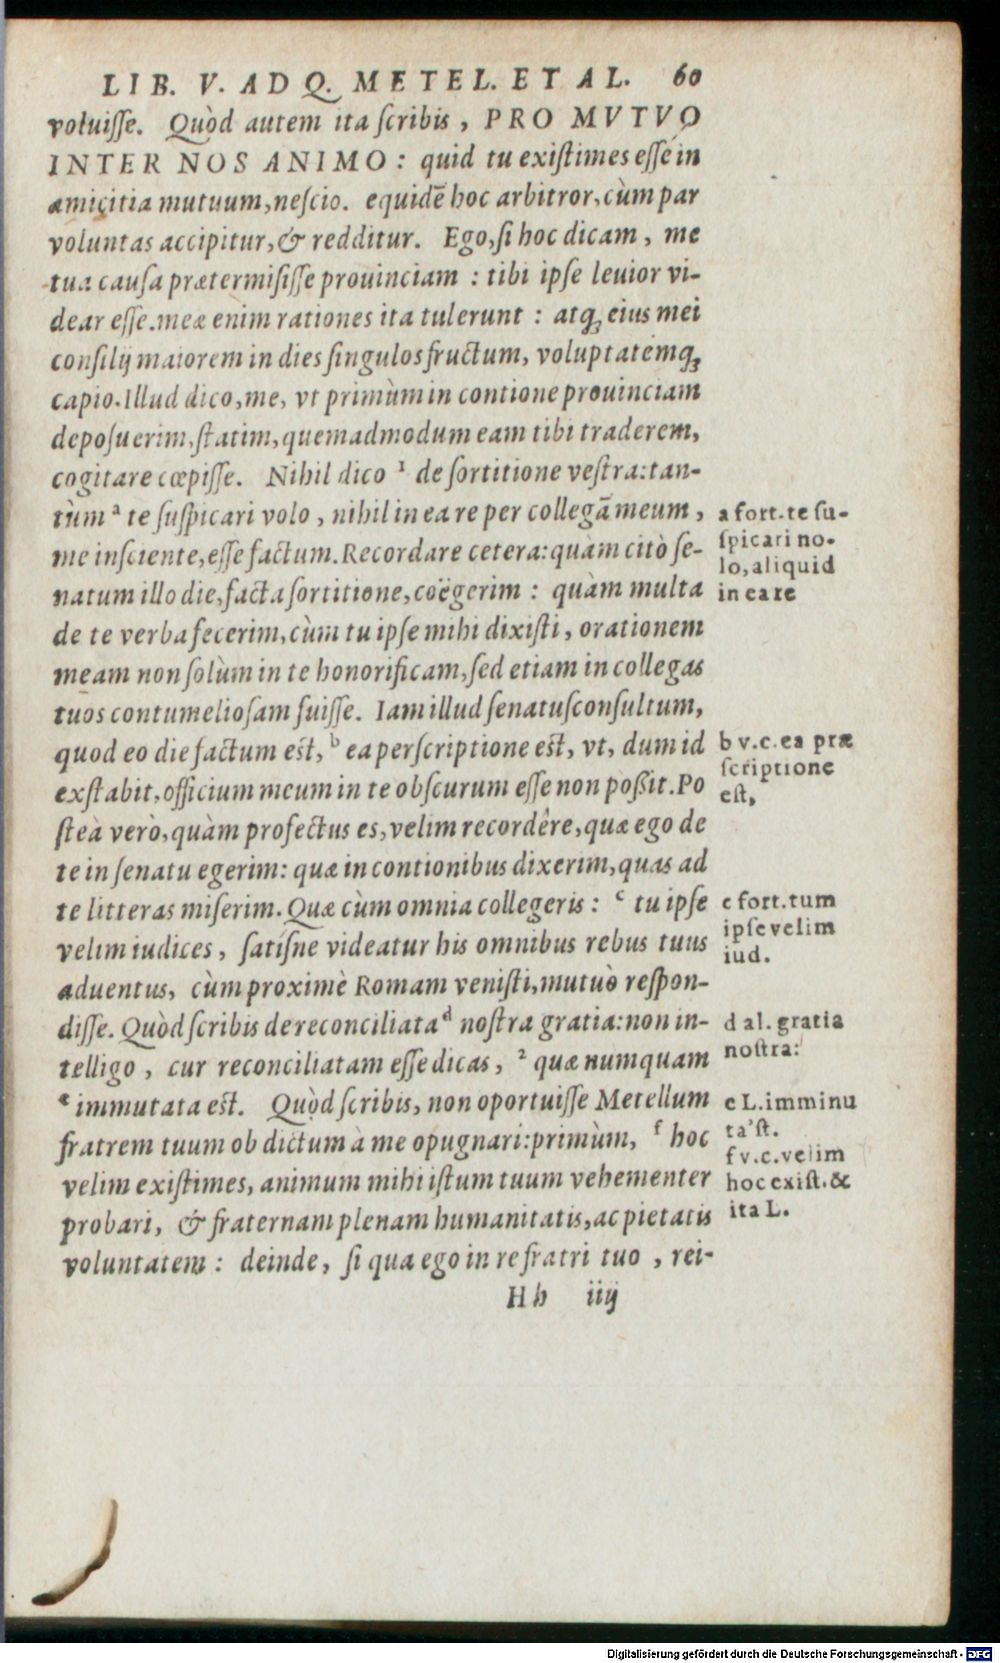 LIB. V. AD Q. METEL. ET AL. 60
voluisse. Quòd autem ita scribis, PRO MVTVO
INTER NOS ANIMO: quid tu existimes esse in
amicitia mutuum, nescio. equidē hoc arbitror, cùm par
voluntas accipitur, & redditur. Ego, si hoc dicam, me
tua causa prætermisisse prouinciam: tibi ipse leuior vi-
dear esse. meæ enim rationes ita tulerunt: atq; eius mei
consilij maiorem in dies singulos fructum, voluptatemq;
capio. Illud dico, me, vt primùm in contione prouinciam
deposuerim, statim, quemadmodum eam tibi traderem,
cogitare cœpisse. Nihil dico 1 de sortitione vestra: tan-
tùm a te suspicari volo, nihil in ea re per collegā meum,
me insciente, esse factum. Recordare cetera: quàm citò se-
natum illo die, facta sortitione, coëgerim: quàm multa
de te verba fecerim, cùm tu ipse mihi dixisti, orationem
meam non solùm in te honorificam, sed etiam in collegas
tuos contumeliosam fuisse. Iam illud senatusconsultum,
quod eo die factum est, b ea perscriptione est, vt, dum id
exstabit, officium meum in te obscurum esse non poßit. Po
steà verò, quàm profectus es, velim recordêre, quæ ego de
te in senatu egerim: quæ in contionibus dixerim, quas ad
te litteras miserim. Quæ cùm omnia collegeris: c tu ipse
velim iudices, satísne videatur his omnibus rebus tuus
aduentus, cùm proximè Romam venisti, mutuò respon-
disse. Quòd scribis de reconciliata d nostra gratia: non in-
telligo, cur reconciliatam esse dicas, 2 quæ numquam
e immutata est. Quòd scribis, non oportuisse Metellum
fratrem tuum ob dictum à me opugnari: primùm, f hoc
velim existimes, animum mihi istum tuum vehementer
probari, & fraternam plenam humanitatis, ac pietatis
voluntatem: deinde, si qua ego in re fratri tuo, rei-
Hh iiij
a fort. te su-
spicari no-
lo, aliquid
in ea re
b v.c. ea præ
scriptione
est,
c fort. tum
ipse velim
iud.
d al. gratia
nostra:
e L. imminu
ta'st.
f v.c. velim
hoc exist. &
ita L.
Digitalisierung gefördert durch die Deutsche Forschungsgemeinschaft - DFG